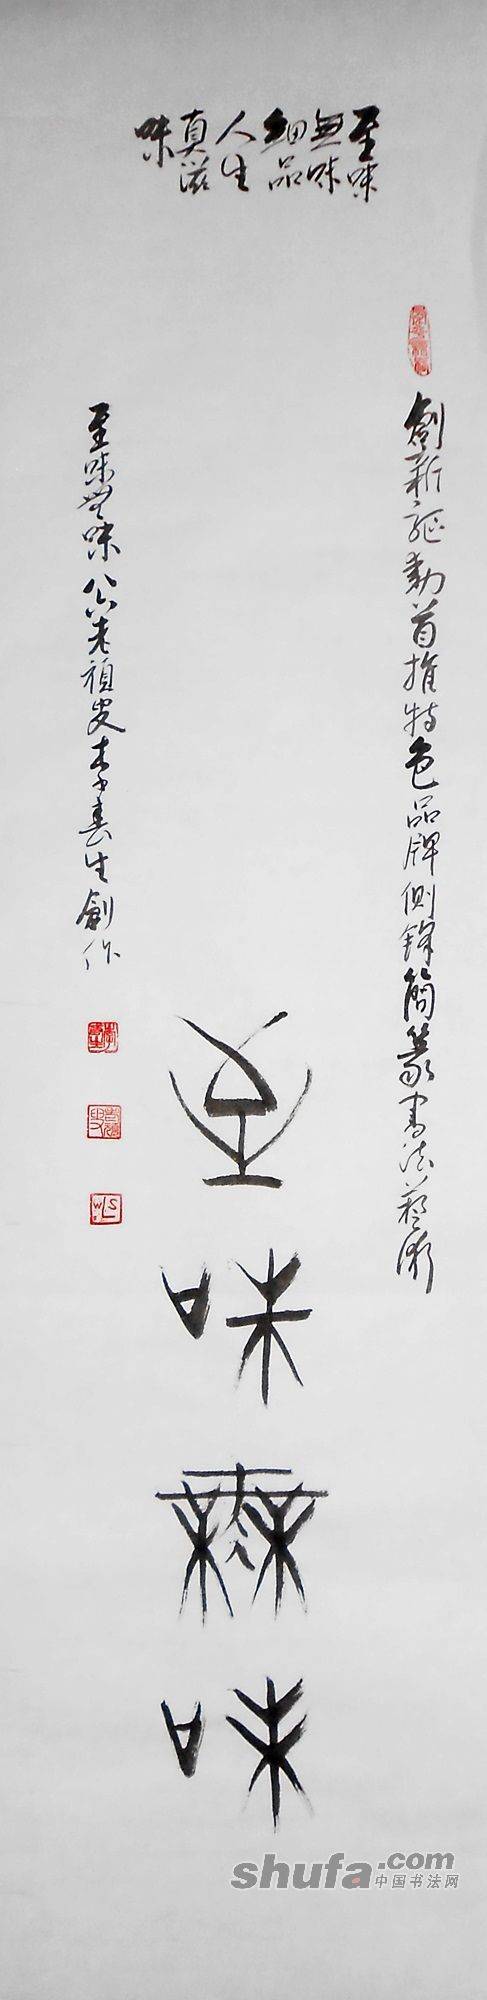 至味
無味
細品
人生
真滋
味
創新驅動首推特色品牌側鋒簡篆書法藝術
至味無味
至味無味 公 老頑皮李春生創作
shufa.com
中国书法网